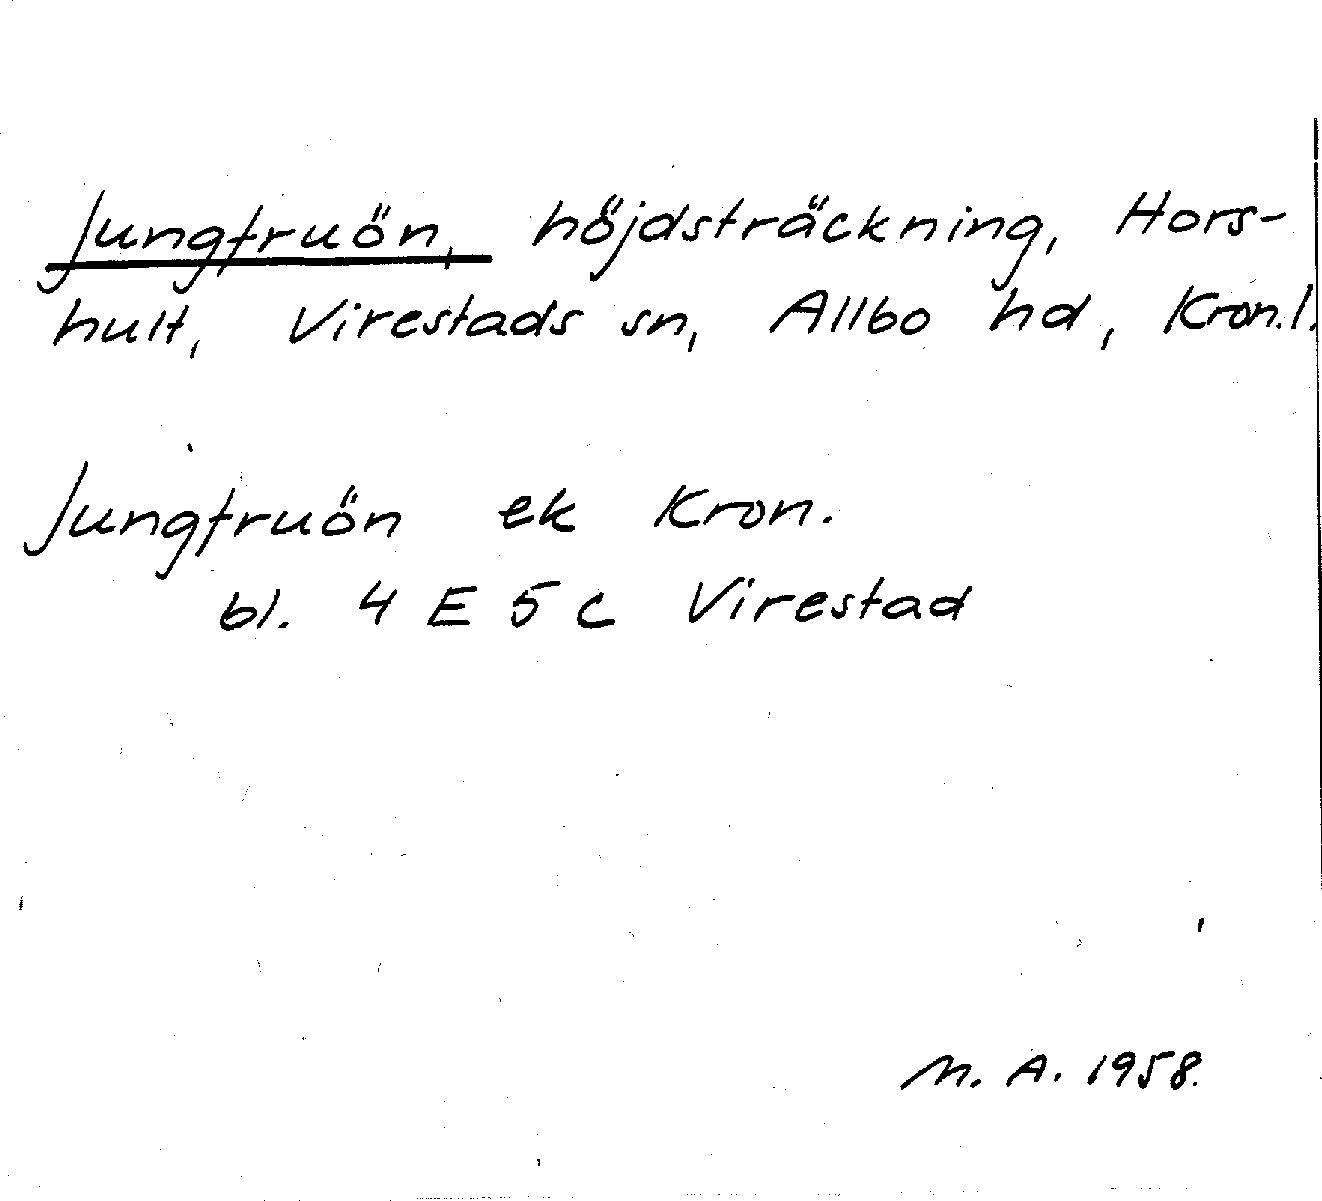 Jungfruön, höjdsträckning, Hors-
hult, Virestads sn, Allbo hd, Kron.l.
Jungfruön ek Kron.
bl. 4 E 5 c Virestad
M. A. 1958.